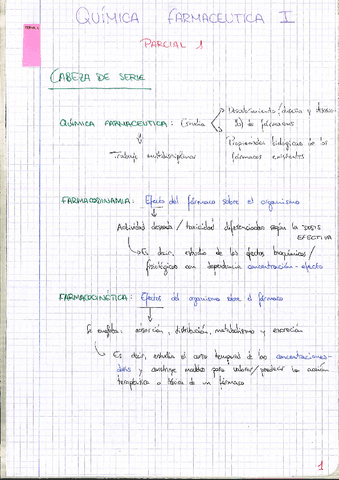 QUÍMICA FARMACEUTICA I
PARCIAL 1
CABEZA DE SERIE
QUÍMICA FARMACEUTICA: Estudia
Descubrimiento/diseño y desarro
llo de fármacos
Propiedades biológicas de los
fármacos existentes
Trabajo multidisciplinar
FARMACODINAMIA: Efecto del fármaco sobre el organismo
Actividad deseada/toxicidad diferenciadas según la DOSIS
EFECTIVA
Es decir, estudia de los efectos bioquímicos/
fisiológicos con dependencia concentración-efecto
FARMACOCINÉTICA: Efectos del organismo sobre el fármaco
Se analiza: absorción, distribución, metabolismo y excreción
Es decir, estudia el curso temporal de las concentraciones-
dosis y construye modelos para valorar/predecir la acción
terapéutica o tóxica de un fármaco
1